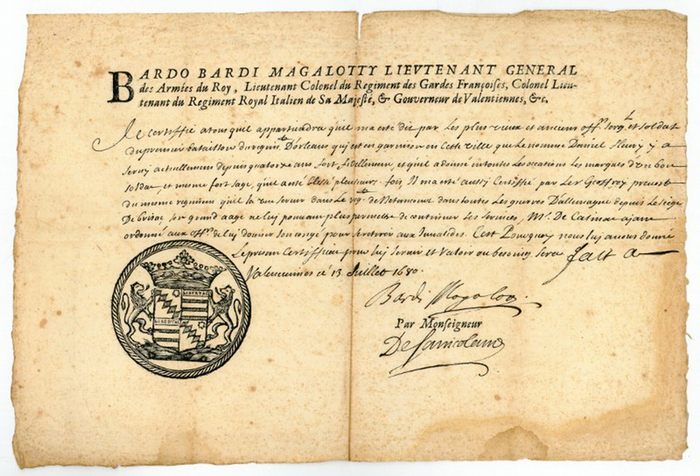 BARDO BARDI MAGALOTTY LIEVTENANT GENERAL
des Armées du Roy, Lieutenant Colonel du Regiment des Gardes Françoises, Colonel Lieu-
tenant du Regiment Royal Italien de Sa Majesté, & Gouverneur de Valentiennes, &c.
Je certiffie a tous quil appartiendra quil ma esté dit par les plus vieux et anciens off. serg. et soldats
du premier bataillon du regim. Dorleans qui est en garnison en cette ville que le nomme Daniel fleury y a
servy actuellement depuis quatorze ans fort fidellement, et quil a donné en toutte les occasions les marques d'un bon
soldat et mesme fort sage, quil a esté blessé plusieurs fois, Il ma esté aussi Certiffié par le Sr Geoffroy prevost
du mesme regiment quil la veu servir dans le reg. de dans toutes les guerres D'allemagne depuis le siege
de son grand aage ne luy pouvant plus permettre de continuer les services, Mr. De Catinat ayant
ordonné aux off. de luy donner son congé pour entrer aux Invalides. Cest Pourquoy nous luy avons donné
Le present Certifficat pour luy servir et valoir au besoing sera fait a
Valenciennes ce 13 Juillet 1680.
LIBERTAS
LIBERTAS
Bardi Magalotty
Par Monseigneur